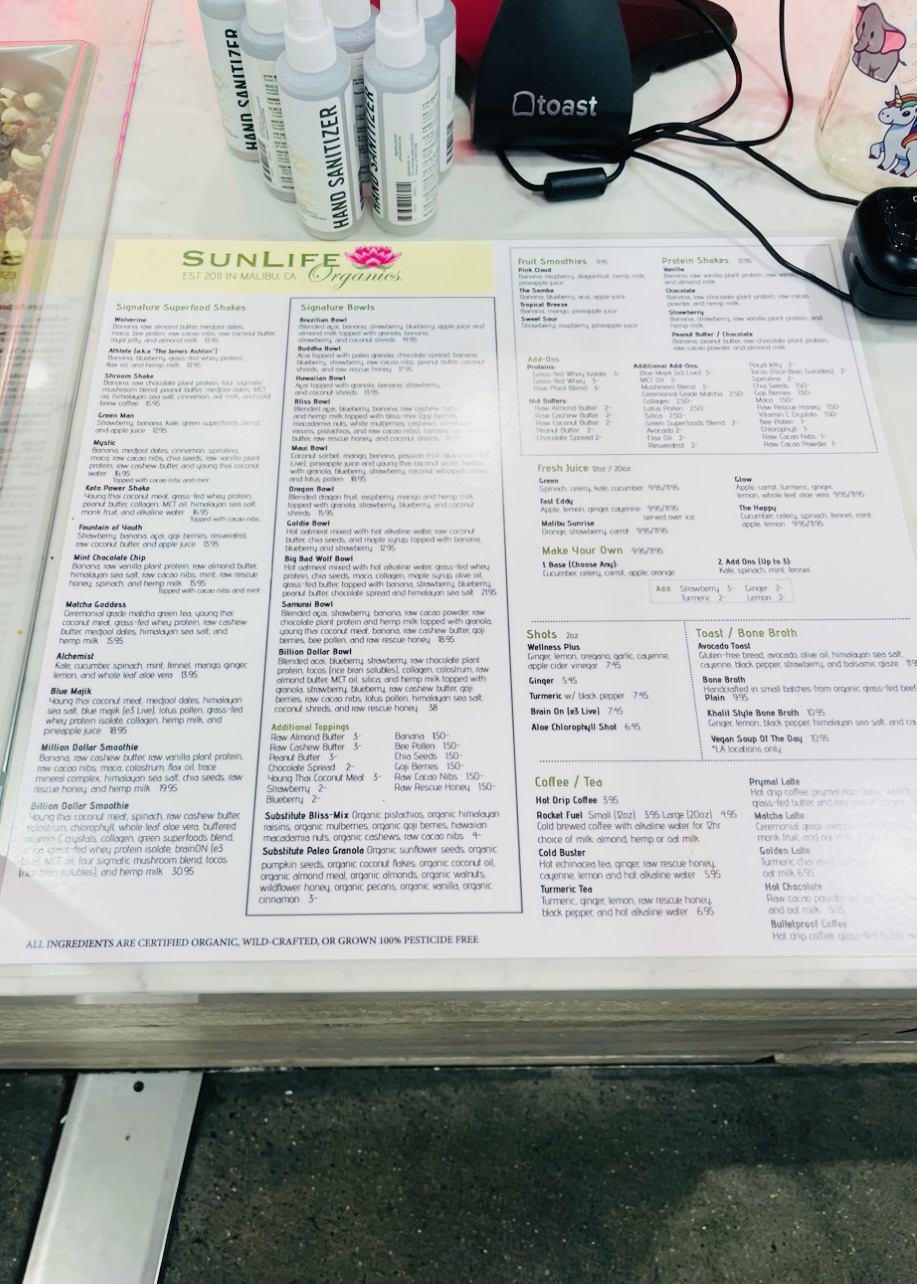 HAND SANITIZER
HAND SANITIZER
HAND SANITIZER
toast
SUNLIFE
EST 2011 IN MALIBU, CA Organics
Signature Superfood Shakes
Wolverine
Banana, raw almond butter, medjool dates,
maca, bee pollen, raw cacao nibs, raw coconut butter,
royal jelly, and almond milk 13.95
Athlete (a.k.a "The James Ashton")
Banana, blueberry, grass-fed whey protein,
flax oil, and hemp milk 13.95
Shroom Shake
Banana, raw chocolate plant protein, four sigmatic
mushroom blend, peanut butter, medjool dates, MCT
oil, himalayan sea salt, cinnamon, oat milk, and cold
brew coffee 15.95
Green Man
Strawberry, banana, kale, green superfoods blend,
and apple juice 12.95
Mystic
Banana, medjool dates, cinnamon, spirulina,
maca, raw cacao nibs, chia seeds, raw vanilla plant
protein, raw cashew butter, and young thai coconut
water 16.95
Topped with cacao nibs, and mint
Keto Power Shake
Young thai coconut meat, grass-fed whey protein,
peanut butter, collagen, MCT oil, himalayan sea salt,
monk fruit, and alkaline water 16.95
Topped with cacao nibs
Fountain of Youth
Strawberry, banana, açai, goji berries, resveratrol,
coconut water and apple juice 13.95
Mint Chocolate Chip
Banana, raw vanilla plant protein, raw almond butter,
himalayan sea salt, raw cacao nibs, mint, raw rescue
honey, spinach, and hemp milk 15.95
Topped with cacao nibs and mint
Matcha Goddess
Ceremonial grade matcha green tea, young thai
coconut meat, grass-fed whey protein, raw cashew
butter, medjool dates, himalayan sea salt, and
hemp milk 15.95
Alchemist
Kale, cucumber, spinach, mint, fennel, mango, ginger,
lemon, and whole leaf aloe vera 13.95
Blue Majik
Young thai coconut meat, medjool dates, himalayan
sea salt, blue majik [e3 Live], lotus pollen, grass-fed
whey protein isolate, collagen, hemp milk, and
pineapple juice 18.95
Million Dollar Smoothie
Banana, raw cashew butter, raw vanilla plant protein,
raw cacao nibs, maca, colostrum, flax oil, trace
mineral complex, himalayan sea salt, chia seeds, raw
rescue honey, and hemp milk 19.95
Billion Dollar Smoothie
Young thai coconut meat, spinach, raw cashew butter,
colostrum, chlorophyll, whole leaf aloe vera, buffered
vitamin C crystals, collagen, green superfoods blend,
grass-fed whey protein isolate, brainON [e3
Live], MCT oil, four sigmatic mushroom blend, tocos
[rice bran solubles], and hemp milk 30.95
Signature Bowls
Brazilian Bowl
Blended açai, banana, strawberry, blueberry, apple juice and
almond milk topped with granola, banana,
strawberry, and coconut shreds 14.95
Buddha Bowl
Açai topped with paleo granola, chocolate spread, banana,
blueberry, strawberry, raw cacao nibs, peanut butter, coconut
shreds, and raw rescue honey 17.95
Hawaiian Bowl
Açai topped with granola, banana, strawberry,
and coconut shreds 13.95
Bliss Bowl
Blended açai, blueberry, banana, raw cashew butter
and hemp milk topped with bliss-mix [goji berries,
macadamia nuts, white mulberries, cashews,
raisins, pistachios, and raw cacao nibs], banana, raw
butter, raw rescue honey, and coconut shreds
Maui Bowl
Coconut sorbet, mango, banana, passion fruit, blue
Live], pineapple juice and young thai coconut water topped
with granola, blueberry, strawberry, coconut whipped
and lotus pollen 18.95
Dragon Bowl
Blended dragon fruit, raspberry, mango and hemp milk
topped with granola, strawberry, blueberry, and coconut
shreds 15.95
Goldie Bowl
Hot oatmeal mixed with hot alkaline water, raw coconut
butter, chia seeds, and maple syrup, topped with banana,
blueberry and strawberry 12.95
Big Bad Wolf Bowl
Hot oatmeal mixed with hot alkaline water, grass-fed whey
protein, chia seeds, maca, collagen, maple syrup, olive oil,
grass-fed butter, and topped with banana, strawberry, blueberry,
peanut butter, chocolate spread and himalayan sea salt 21.95
Samurai Bowl
Blended açai, strawberry, banana, raw cacao powder, raw
chocolate plant protein and hemp milk topped with granola,
young thai coconut meat, banana, raw cashew butter, goji
berries, bee pollen, and raw rescue honey 18.95
Billion Dollar Bowl
Blended açai, blueberry, strawberry, raw chocolate plant
protein, tocos [rice bran solubles], collagen, colostrum, raw
almond butter, MCT oil, silica, and hemp milk topped with
granola, strawberry, blueberry, raw cashew butter, goji
berries, raw cacao nibs, lotus pollen, himalayan sea salt,
coconut shreds, and raw rescue honey 38
Additional Toppings
Raw Almond Butter 3-
Raw Cashew Butter 3-
Peanut Butter 3-
Chocolate Spread 2-
Young Thai Coconut Meat 3-
Strawberry 2-
Blueberry 2-
Banana 1.50-
Bee Pollen 1.50-
Chia Seeds 1.50-
Goji Berries 1.50-
Raw Cacao Nibs 1.50-
Raw Rescue Honey 1.50-
Substitute Bliss-Mix Organic pistachios, organic himalayan
raisins, organic mulberries, organic goji berries, hawaiian
macadamia nuts, organic cashews, raw cacao nibs 4-
Substitute Paleo Granola Organic sunflower seeds, organic
pumpkin seeds, organic coconut flakes, organic coconut oil,
organic almond meal, organic almonds, organic walnuts,
wildflower honey, organic pecans, organic vanilla, organic
cinnamon 3-
ALL INGREDIENTS ARE CERTIFIED ORGANIC, WILD-CRAFTED, OR GROWN 100% PESTICIDE FREE
Fruit Smoothies 11.95
Pink Cloud
Banana, raspberry, dragonfruit, hemp milk,
pineapple juice
The Samba
Banana, blueberry, açai, apple juice
Tropical Breeze
Banana, mango, pineapple juice
Sweet Sour
Strawberry, raspberry, pineapple juice
Protein Shakes 12.95
Vanilla
Banana, raw vanilla plant protein, raw
and almond milk
Chocolate
Banana, raw chocolate plant protein, raw cacao
powder, and hemp milk
Strawberry
Banana, strawberry, raw vanilla plant protein, and
hemp milk
Peanut Butter / Chocolate
Banana, peanut butter, raw chocolate plant protein,
raw cacao powder, and almond milk
Add-Ons
Proteins:
Grass-Fed Whey Isolate 3-
Grass-Fed Whey 3-
Raw Plant Blend 3-
Nut Butters:
Raw Almond Butter 2-
Raw Cashew Butter 2-
Raw Coconut Butter 2-
Peanut Butter 2-
Chocolate Spread 2-
Additional Add-Ons:
Blue Majik [e3 Live] 3-
MCT Oil 3-
Mushroom Blend 3-
Ceremonial Grade Matcha 2.50-
Collagen 2.50-
Lotus Pollen 2.50-
Silica 2.50-
Green Superfoods Blend 2-
Avocado 2-
Flax Oil 2-
Resveratrol 2-
Royal Jelly 2-
Tocos [Rice Bran Solubles] 2-
Spirulina 2-
Chia Seeds 1.50-
Goji Berries 1.50-
Maca 1.50-
Raw Rescue Honey 1.50-
Vitamin C Crystals 1.50-
Bee Pollen 1-
Chlorophyll 1-
Raw Cacao Nibs 1-
Raw Cacao Powder 1-
Fresh Juice 12oz / 20oz
Green
Spinach, celery, kale, cucumber 9.95/11.95
Fast Eddy
Apple, lemon, ginger, cayenne 9.95/11.95
served over ice
Malibu Sunrise
Orange, strawberry, carrot 9.95/11.95
Glow
Apple, carrot, turmeric, ginger,
lemon, whole leaf aloe vera 9.95/11.95
The Happy
Cucumber, celery, spinach, fennel, mint,
apple, lemon 9.95/11.95
Make Your Own 9.95/11.95
1. Base (Choose Any):
Cucumber, celery, carrot, apple, orange
2. Add Ons (Up to 5):
Kale, spinach, mint, fennel
Add Strawberry 3- Ginger 2-
Turmeric 2- Lemon 2-
Shots 2oz
Wellness Plus
Ginger, lemon, oregano, garlic, cayenne,
apple cider vinegar 7.45
Ginger 5.45
Turmeric w/ black pepper 7.45
Brain On [e3 Live] 7.45
Aloe Chlorophyll Shot 6.45
Toast / Bone Broth
Avocado Toast
Gluten-free bread, avocado, olive oil, himalayan sea salt,
cayenne, black pepper, strawberry, and balsamic glaze
Bone Broth
Handcrafted in small batches from organic grass-fed beef
Plain 9.95
Khalil Style Bone Broth 10.95
Ginger, lemon, black pepper, himalayan sea salt, and
Vegan Soup Of The Day 10.95
*LA locations only
Coffee / Tea
Hot Drip Coffee 3.95
Rocket Fuel Small [12oz] 3.95 Large [20oz] 4.95
Cold brewed coffee with alkaline water for 12hr
choice of milk almond, hemp or oat milk
Cold Buster
Hot echinacea tea, ginger, raw rescue honey,
cayenne, lemon and hot alkaline water 5.95
Turmeric Tea
Turmeric, ginger, lemon, raw rescue honey,
black pepper, and hot alkaline water 6.95
Prymal Latte
Hot drip coffee, prymal
grass-fed butter, and raw
Matcha Latte
Ceremonial grade
monk fruit, and oat
Golden Latte
Turmeric
oat milk 6.95
Hot Chocolate
Raw cacao powder
and oat milk 5.95
Bulletproof Coffee
Hot drip coffee, grass-fed butter,